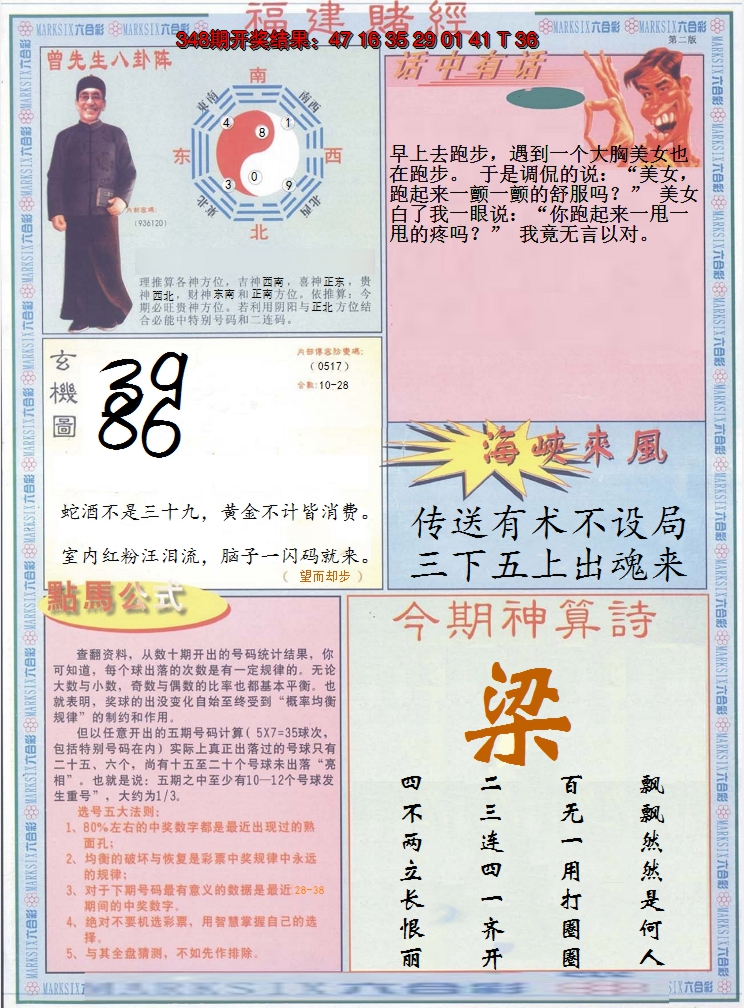 福建賭經
348期开奖结果：47 16 35 29 01 41 T 36
MARKSIX六合彩 MARKSIX六合彩 MARKSIX六合彩 MARKSIX六合彩
第二版
曾先生八卦阵
南
东南
南西
4
8
1
东
西
3
0
9
东北
北西
北
内部密碼：
（936120）
理推算各神方位，吉神西南，喜神正东，贵
神西北，财神东南和正南方位。依推算：今
期必旺贵神方位。若利用阴阳与正北方位结
合必能中特别号码和二连码。
话中有话
早上去跑步，遇到一个大胸美女也
在跑步。 于是调侃的说：“美女，
跑起来一颤一颤的舒服吗？” 美女
白了我一眼说：“你跑起来一甩一
甩的疼吗？” 我竟无言以对。
玄機圖
39
86
（0517）
合数:10-28
蛇酒不是三十九，黄金不计皆消费。
室内红粉汪泪流，脑子一闪码就来。
（ 望而却步 ）
海峽來風
传送有术不设局
三下五上出魂来
點馬公式
查翻资料，从数十期开出的号码统计结果，你
可知道，每个球出落的次数是有一定规律的。无论
大数与小数，奇数与偶数的比率也都基本平衡。也
就表明，奖球的出没变化自始至终受到“概率均衡
规律”的制约和作用。
但以任意开出的五期号码计算( 5X7=35球次，
包括特别号码在内) 实际上真正出落过的号球只有
二十五、六个，尚有十五至二十个号球未出落“亮
相”。也就是说：五期之中至少有10—12个号球发
生重号”，大约为1/3。
选号五大法则:
1、80%左右的中奖数字都是最近出现过的熟
面孔；
2、均衡的破坏与恢复是彩票中奖规律中永远
的规律；
3、对于下期号码最有意义的数据是最近28-38
期间的中奖数字。
4、绝对不要机选彩票，用智慧掌握自己的选
择。
5、与其全盘猜测，不如先作排除。
今期神算詩
梁
飘飘然然是何人
百无一用打圈圈
二三连四一齐开
四不两立长恨丽
MARKSIX六合彩